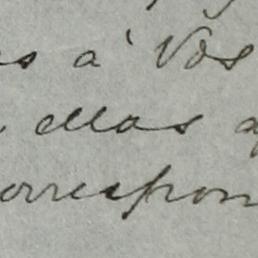 s à Vos
ellas a
orrespon